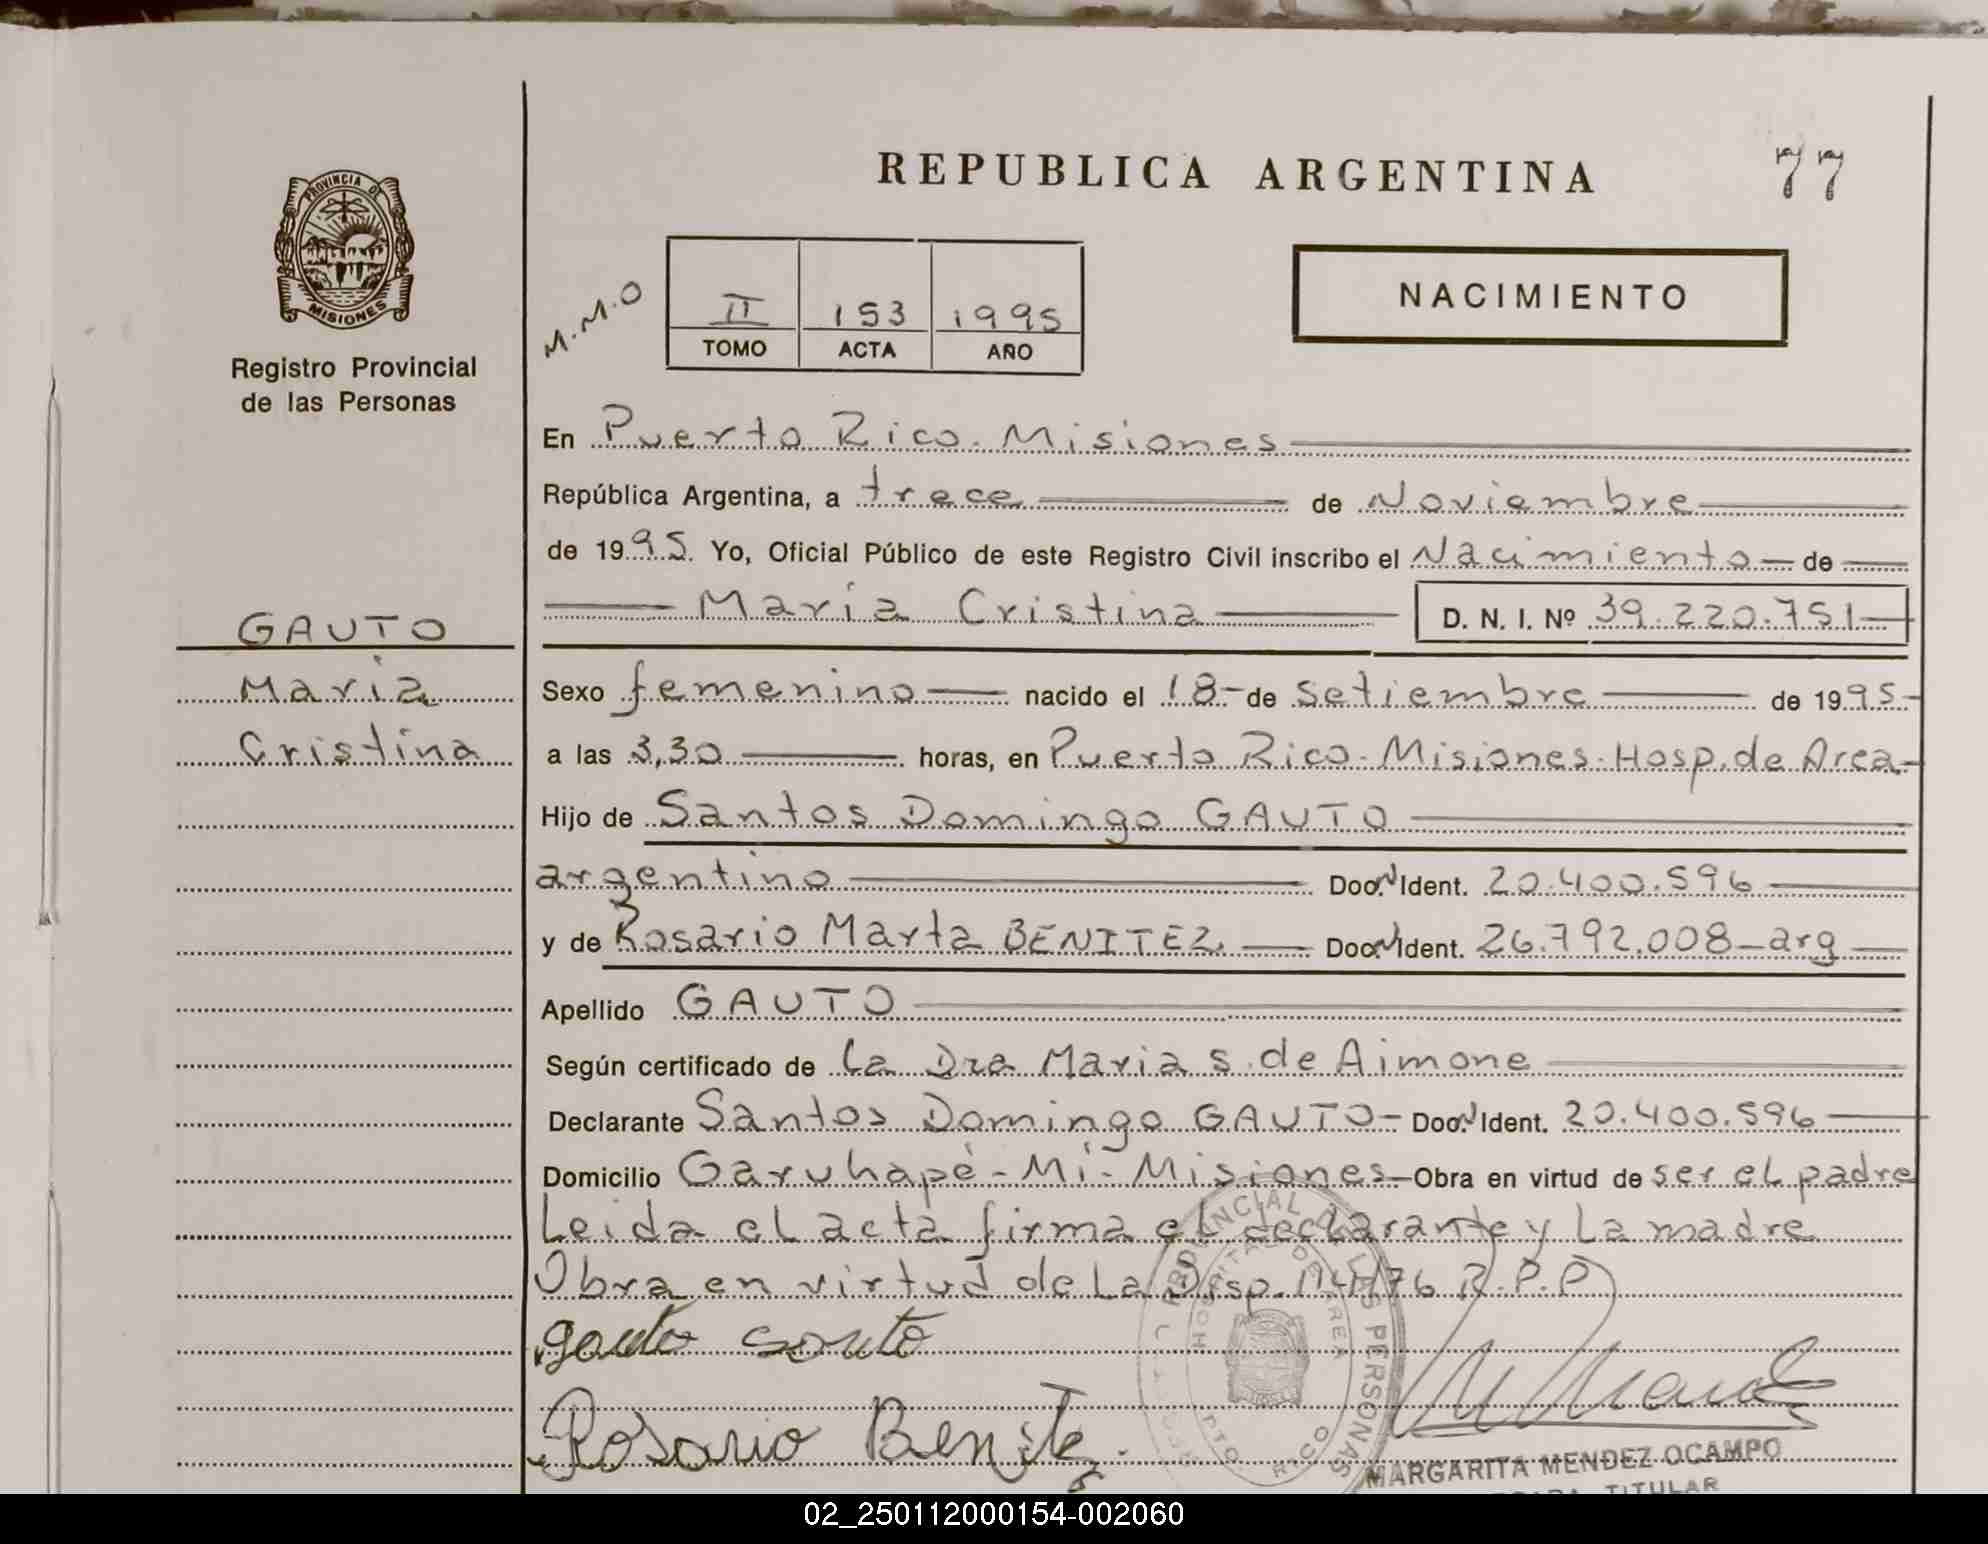 REPUBLICA ARGENTINA
77
PROVINCIA DE
MISIONES
Registro Provincial
de las Personas
M.M.O
II 153 1995
TOMO ACTA AÑO
NACIMIENTO
En Puerto Rico. Misiones
República Argentina, a trece de Noviembre
de 1995. Yo, Oficial Público de este Registro Civil inscribo el Nacimiento de
María Cristina D. N. I. Nº 39.220.751
GAUTO
María
Cristina
Sexo femenino nacido el 18 de Setiembre de 1995
a las 3,30 horas, en Puerto Rico. Misiones. Hosp. de Area
Hijo de Santos Domingo GAUTO
argentino Doc. N Ident. 20.400.596
y de Rosario Marta BENITEZ Doc. N Ident. 26.792.008 - arg
Apellido GAUTO
Según certificado de la Dra Maria S. de Aimone
Declarante Santos Domingo GAUTO - Doc. N Ident. 20.400.596
Domicilio Garuhapé - Mí - Misiones - Obra en virtud de ser el padre
Leida el acta firma el declarante y la madre
Obra en virtud de la Disp. 114/76 R.P.P
gauto
Rosario Benitez
PROVINCIAL DE LAS PERSONAS
HOSPITAL DE AREA
PTO. RICO
MARGARITA MENDEZ OCAMPO
TITULAR
02_250112000154-002060